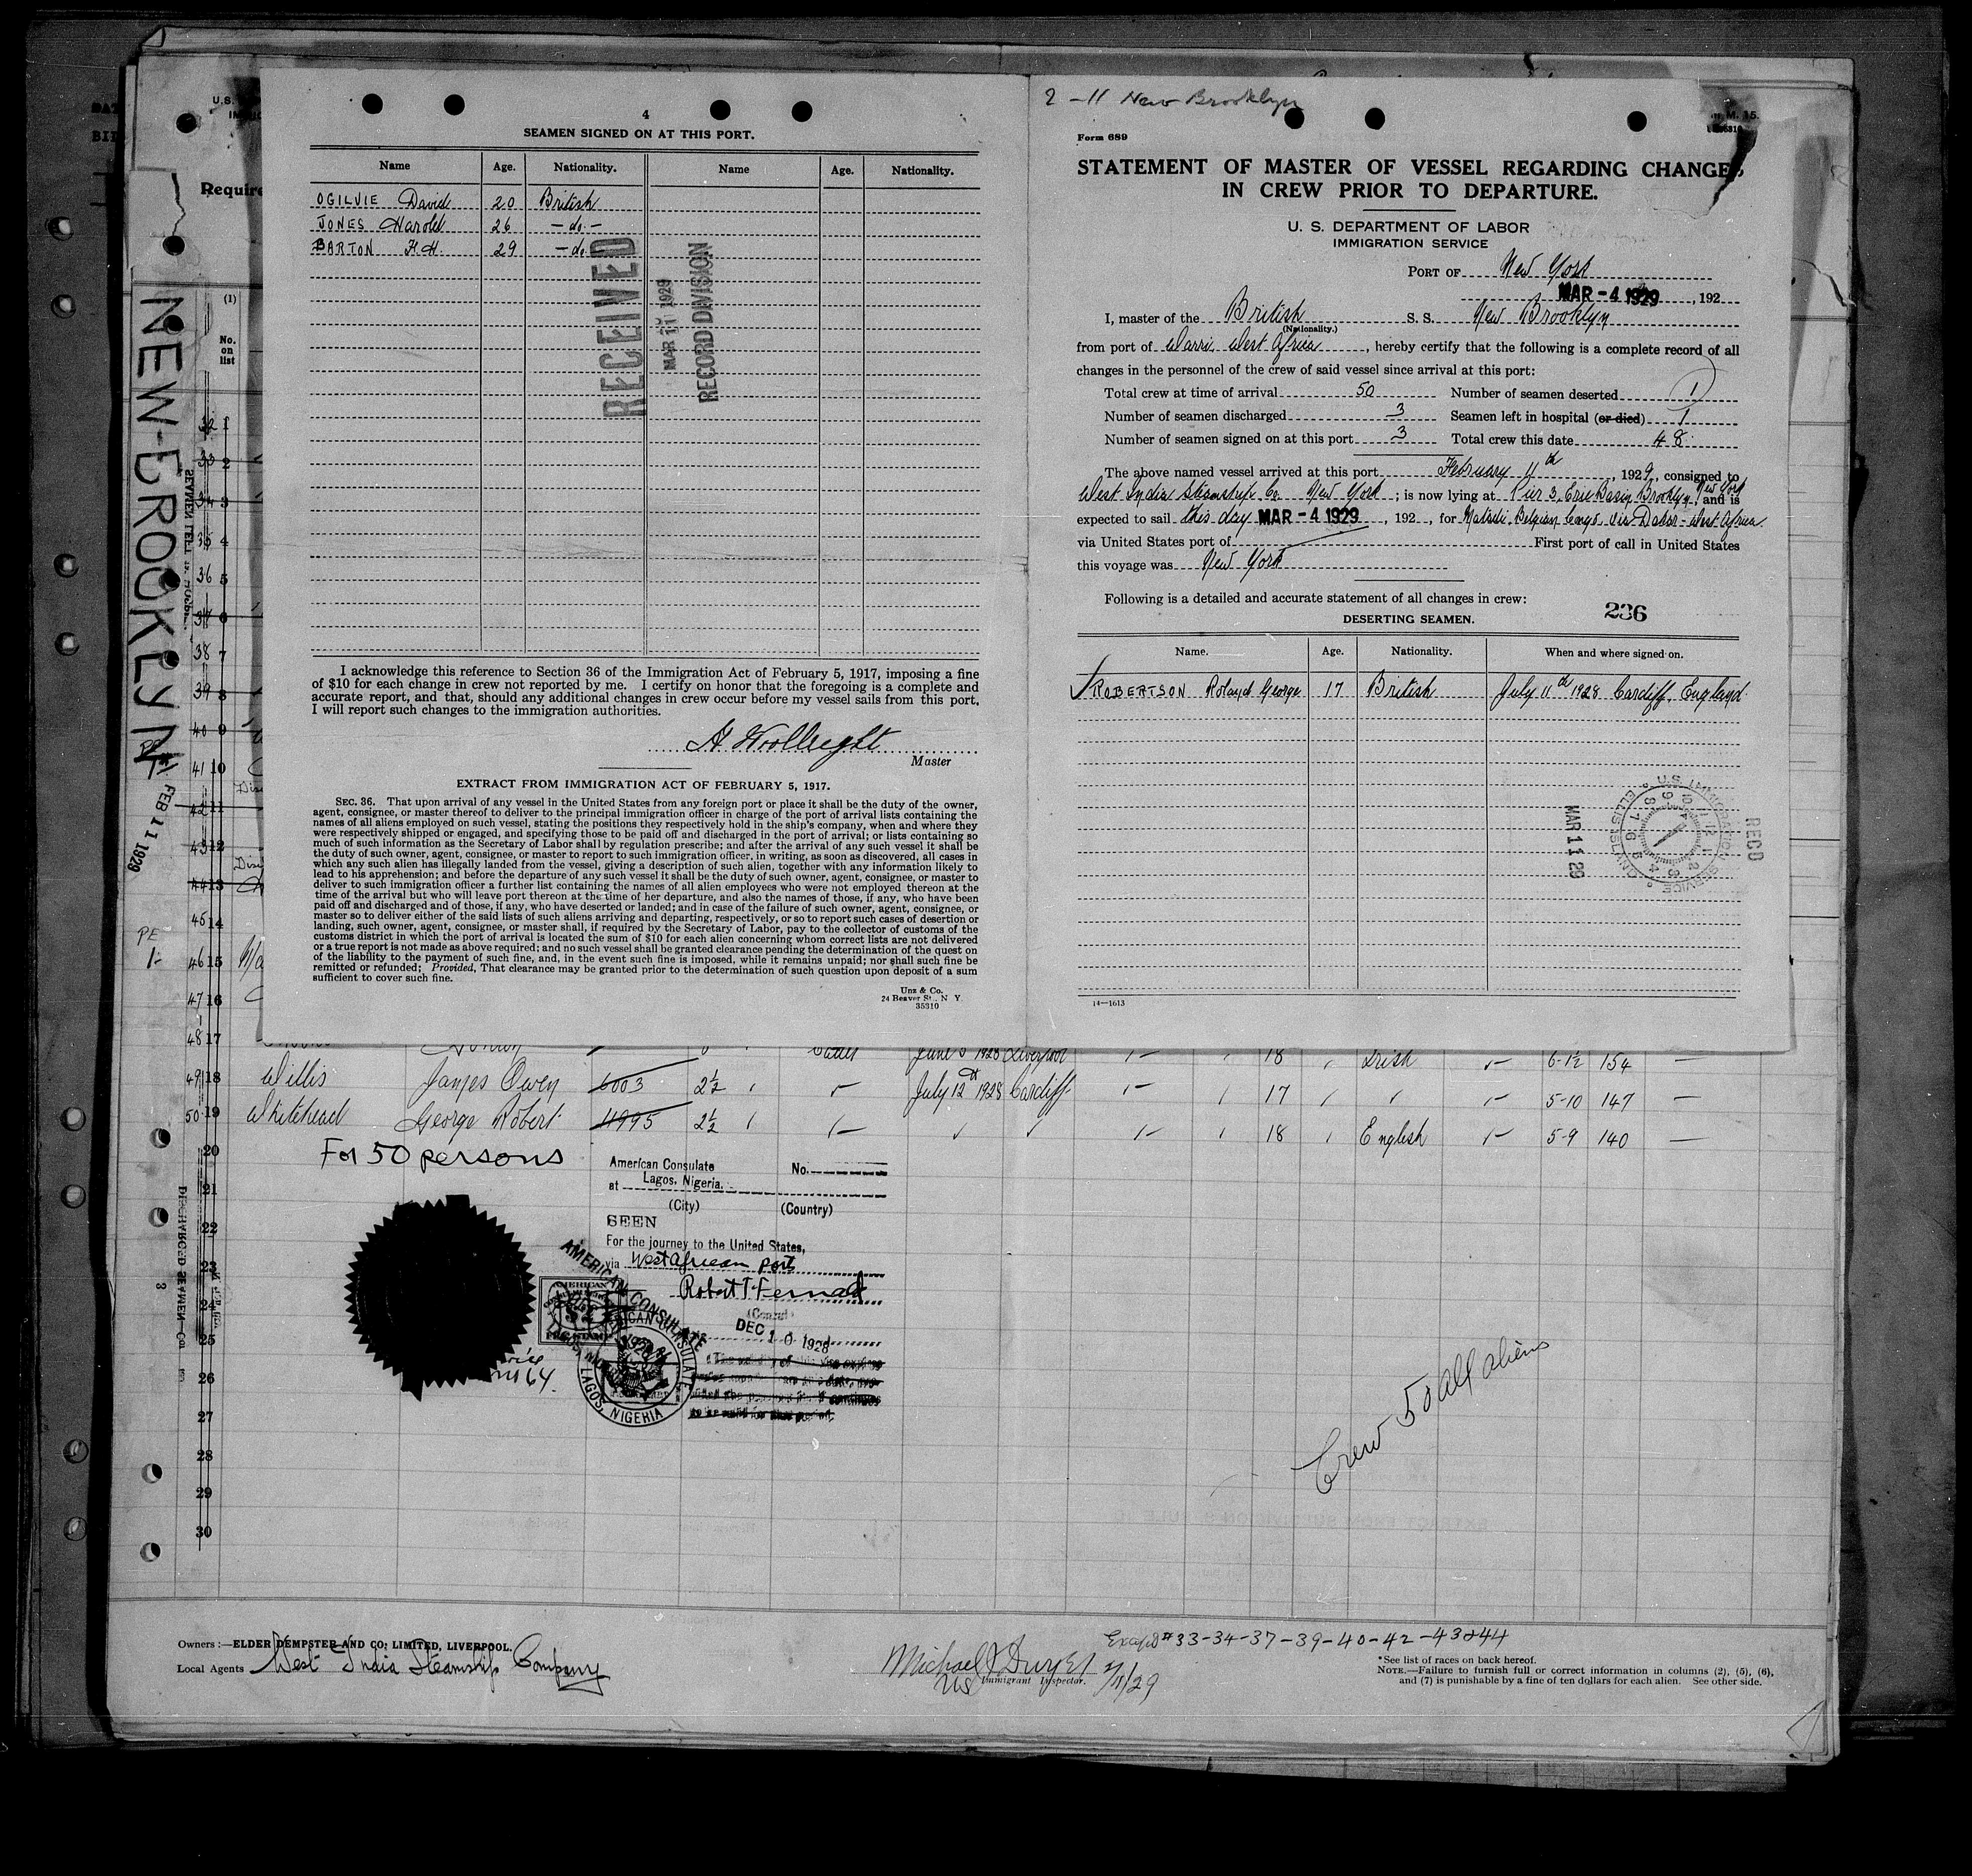 4
SEAMEN SIGNED ON AT THIS PORT.
Name Age. Nationality. Name Age. Nationality.
OGILVIE David 20 British
JONES Harold 26 - do -
BARTON H.H. 29 - do
RECEIVED
MAR 11 1929
RECORD DIVISION
I acknowledge this reference to Section 36 of the Immigration Act of February 5, 1917, imposing a fine
of $10 for each change in crew not reported by me. I certify on honor that the foregoing is a complete and
accurate report, and that, should any additional changes in crew occur before my vessel sails from this port,
I will report such changes to the immigration authorities.
Master
EXTRACT FROM IMMIGRATION ACT OF FEBRUARY 5, 1917.
SEC. 36. That upon arrival of any vessel in the United States from any foreign port or place it shall be the duty of the owner,
agent, consignee, or master thereof to deliver to the principal immigration officer in charge of the port of arrival lists containing the
names of all aliens employed on such vessel, stating the positions they respectively hold in the ship's company, when and where they
were respectively shipped or engaged, and specifying those to be paid off and discharged in the port of arrival; or lists containing so
much of such information as the Secretary of Labor shall by regulation prescribe; and after the arrival of any such vessel it shall be
the duty of such owner, agent, consignee, or master to report to such immigration officer, in writing, as soon as discovered, all cases in
which any such alien has illegally landed from the vessel, giving a description of such alien, together with any information likely to
lead to his apprehension; and before the departure of any such vessel it shall be the duty of such owner, agent, consignee, or master to
deliver to such immigration officer a further list containing the names of all alien employees who were not employed thereon at the
time of the arrival but who will leave port thereon at the time of her departure, and also the names of those, if any, who have been
paid off and discharged and of those, if any, who have deserted or landed; and in case of the failure of such owner, agent, consignee, or
master so to deliver either of the said lists of such aliens arriving and departing, respectively, or so to report such cases of desertion or
landing, such owner, agent, consignee, or master shall, if required by the Secretary of Labor, pay to the collector of customs of the
customs district in which the port of arrival is located the sum of $10 for each alien concerning whom correct lists are not delivered
or a true report is not made as above required; and no such vessel shall be granted clearance pending the determination of the quest on
of the liability to the payment of such fine, and, in the event such fine is imposed, while it remains unpaid; nor shall such fine be
remitted or refunded; Provided, That clearance may be granted prior to the determination of such question upon deposit of a sum
sufficient to cover such fine.
Unz & Co.
24 Beaver St., N. Y.
35310
2-11 New Brooklyn
Form 689
STATEMENT OF MASTER OF VESSEL REGARDING CHANGES
IN CREW PRIOR TO DEPARTURE.
U. S. DEPARTMENT OF LABOR
IMMIGRATION SERVICE
PORT OF New York
MAR - 4 1929 , 192
I, master of the British S. S. New Brooklyn
(Nationality.)
from port of Warri, West Africa , hereby certify that the following is a complete record of all
changes in the personnel of the crew of said vessel since arrival at this port:
Total crew at time of arrival 50 Number of seamen deserted 1
Number of seamen discharged 3 Seamen left in hospital (or died) 1
Number of seamen signed on at this port 3 Total crew this date 48
The above named vessel arrived at this port February 11th , 1929, consigned to
West India Steamship Co. New York ; is now lying at Pier 3, Erie Basin, Brooklyn, New York and is
expected to sail this day MAR - 4 1929 , 192 , for Matadi, Belgian Congo, via Dakar - West Africa
via United States port of First port of call in United States
this voyage was New York
Following is a detailed and accurate statement of all changes in crew:
236
DESERTING SEAMEN.
Name. Age. Nationality. When and where signed on.
ROBERTSON Roland George 17 British July 11th 1928 Cardiff, England
RECD
U.S. IMMIGRATION SERVICE ELLIS ISLAND
MAR 11 29
14-1613
U.S.
Require
(1)
No.
on
list
NEW-BROOKLYN
FEB 11 1929
June 5 1928 Liverpool 18 Irish 6-1½ 154
49 18 Willis James Owen 6003 2½ July 12th 1928 Cardiff 17 5-10 147
50 19 Whitehead George Robert 11995 2½ 18 English 5-9 140
20
21
22
23
24
25
26
27
28
29
30
For 50 persons
American Consulate No.
at Lagos, Nigeria.
(City) (Country)
SEEN
For the journey to the United States,
via West African ports
(Consul)
DEC 10 1928
AMERICAN CONSULATE
LAGOS, NIGERIA
Crew 50 all aliens
Owners :—ELDER DEMPSTER AND CO; LIMITED, LIVERPOOL.
Local Agents West India Steamship Company
Michael J Dwyer 2/11/29
Immigrant Inspector.
Exap'd # 33-34-37-39-40-42-43&44
*See list of races on back hereof.
NOTE.—Failure to furnish full or correct information in columns (2), (5), (6),
and (7) is punishable by a fine of ten dollars for each alien. See other side.